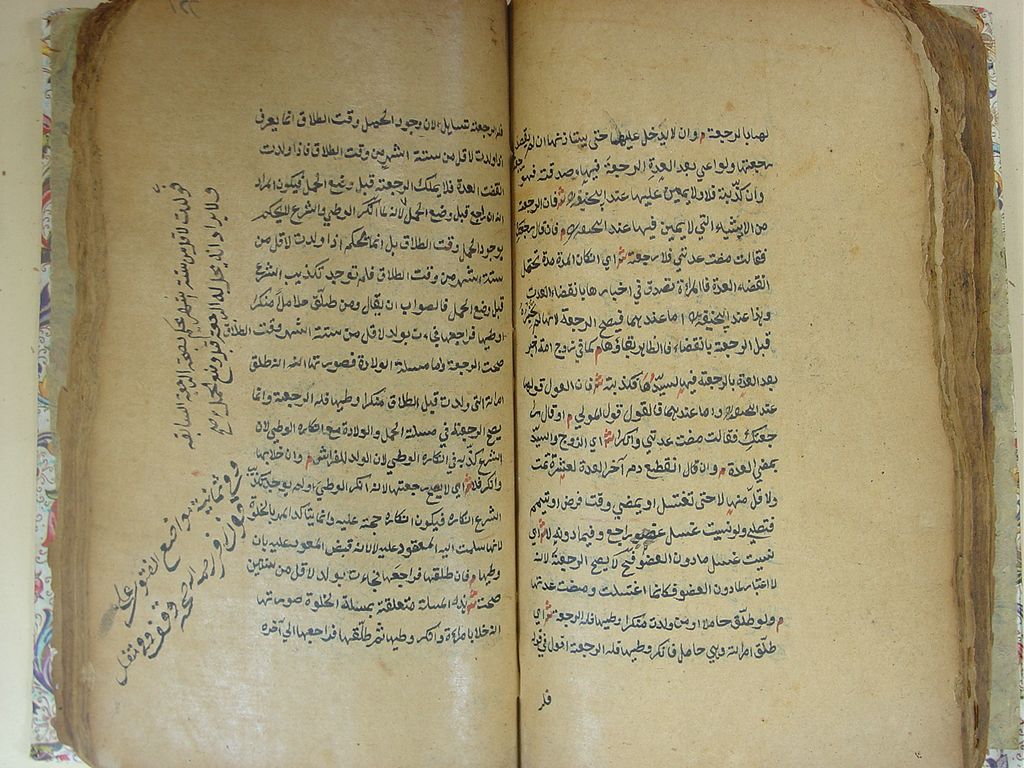 لها بالرجعة م وان لا يدخل عليها حتى يستأذنها ان لم يقصد
رجعتها ولو ادعى بعد العدة الرجعة فيها وصدقته فهو رجعة
وان كذبته فلا ولا يمين عليها عند ابي حنيفة ش فان الرجعة
من الاشياء التي لا يمين فيها عند ابي حنيفة م فان قال راجعتك
فقالت مضت عدتي فلا رجعة ش اي ان كان المدة مدة تحتمل
انقضاء العدة فالمرأة تصدق في اخبارها بانقضاء العدة
وهذا عند ابي حنيفة اما عندهما فيصح الرجعة لانها لم تخبره
قبل الرجعة بانقضاء فالظاهر بقاؤها م كما في زوج امة اخبر
بعد العدة بالرجعة فيها لسيدها فكذبته ش فان القول قولها
عند ابي حنيفة واما عندهما فالقول قول المولى م او قال را
جعتك فقالت مضت عدتي وانكرا ش اي الزوج والسيد
بمضي العدة م وان قال انقطع دم آخر العدة لعشرة تمت
ولاقل منها لا حتى تغتسل او يمضي وقت فرض او تتيمم
فتصلي ولو نسيت غسل عضو راجع وفيما دونه لا ش اي
نسيت غسل ما دون العضو فح لا يصح الرجعة لانه
لا اعتبار لما دون العضو فكأنها اغتسلت ومضت عدتها
م ولو طلق حاملا او من ولدت منكرا وطيها فله الرجعة ش اي
طلق امرأته وهي حامل فانكر وطيها فله الرجعة اقول في قوله
فله
فله الرجعة تساهل لان وجود الحمل وقت الطلاق انما يعرف
اذا ولدت لاقل من ستة اشهر من وقت الطلاق فاذا ولدت
انقضت العدة فلا يملك الرجعة قبل وضع الحمل فيكون المراد
انه ان راجع قبل وضع الحمل لانه لما انكر الوطي والشرع لا يحكم
بوجود الحمل وقت الطلاق بل انما يحكم اذا ولدت لاقل من
ستة اشهر من وقت الطلاق فلم توجد تكذيب الشرع
قبل وضع الحمل فالصواب ان يقال ومن طلق حاملا منكرا
وطيها فراجعها فجاءت بولد لاقل من ستة اشهر وقت الطلاق
صحت الرجعة واما مسئلة الولادة فصورتها انه طلق
امرأته التي ولدت قبل الطلاق منكرا وطيها فله الرجعة وانما
يصح الرجعة في مسئلة الحمل والولادة مع انكاره الوطي لان
الشرع كذبه في انكاره الوطي لان الولد للفراش م وان خلا بها
وانكر فلا ش اي لا يصح رجعتها لانه انكر الوطي ولم يوجد تكذيب
الشرع انكاره فيكون انكاره حجة عليه وانما يتأكد المهر بالخلوة
لانها سلمت اليه المعقود عليه لا لانه قبض المعقود عليه بان
وطيها م فان طلقها فراجعها فجاءت بولد لاقل من سنتين
صحت ش هذه المسئلة متعلقة بمسئلة الخلوة صورتها
انه خلا بامرأة وانكر وطيها ثم طلقها فراجعها الى آخره